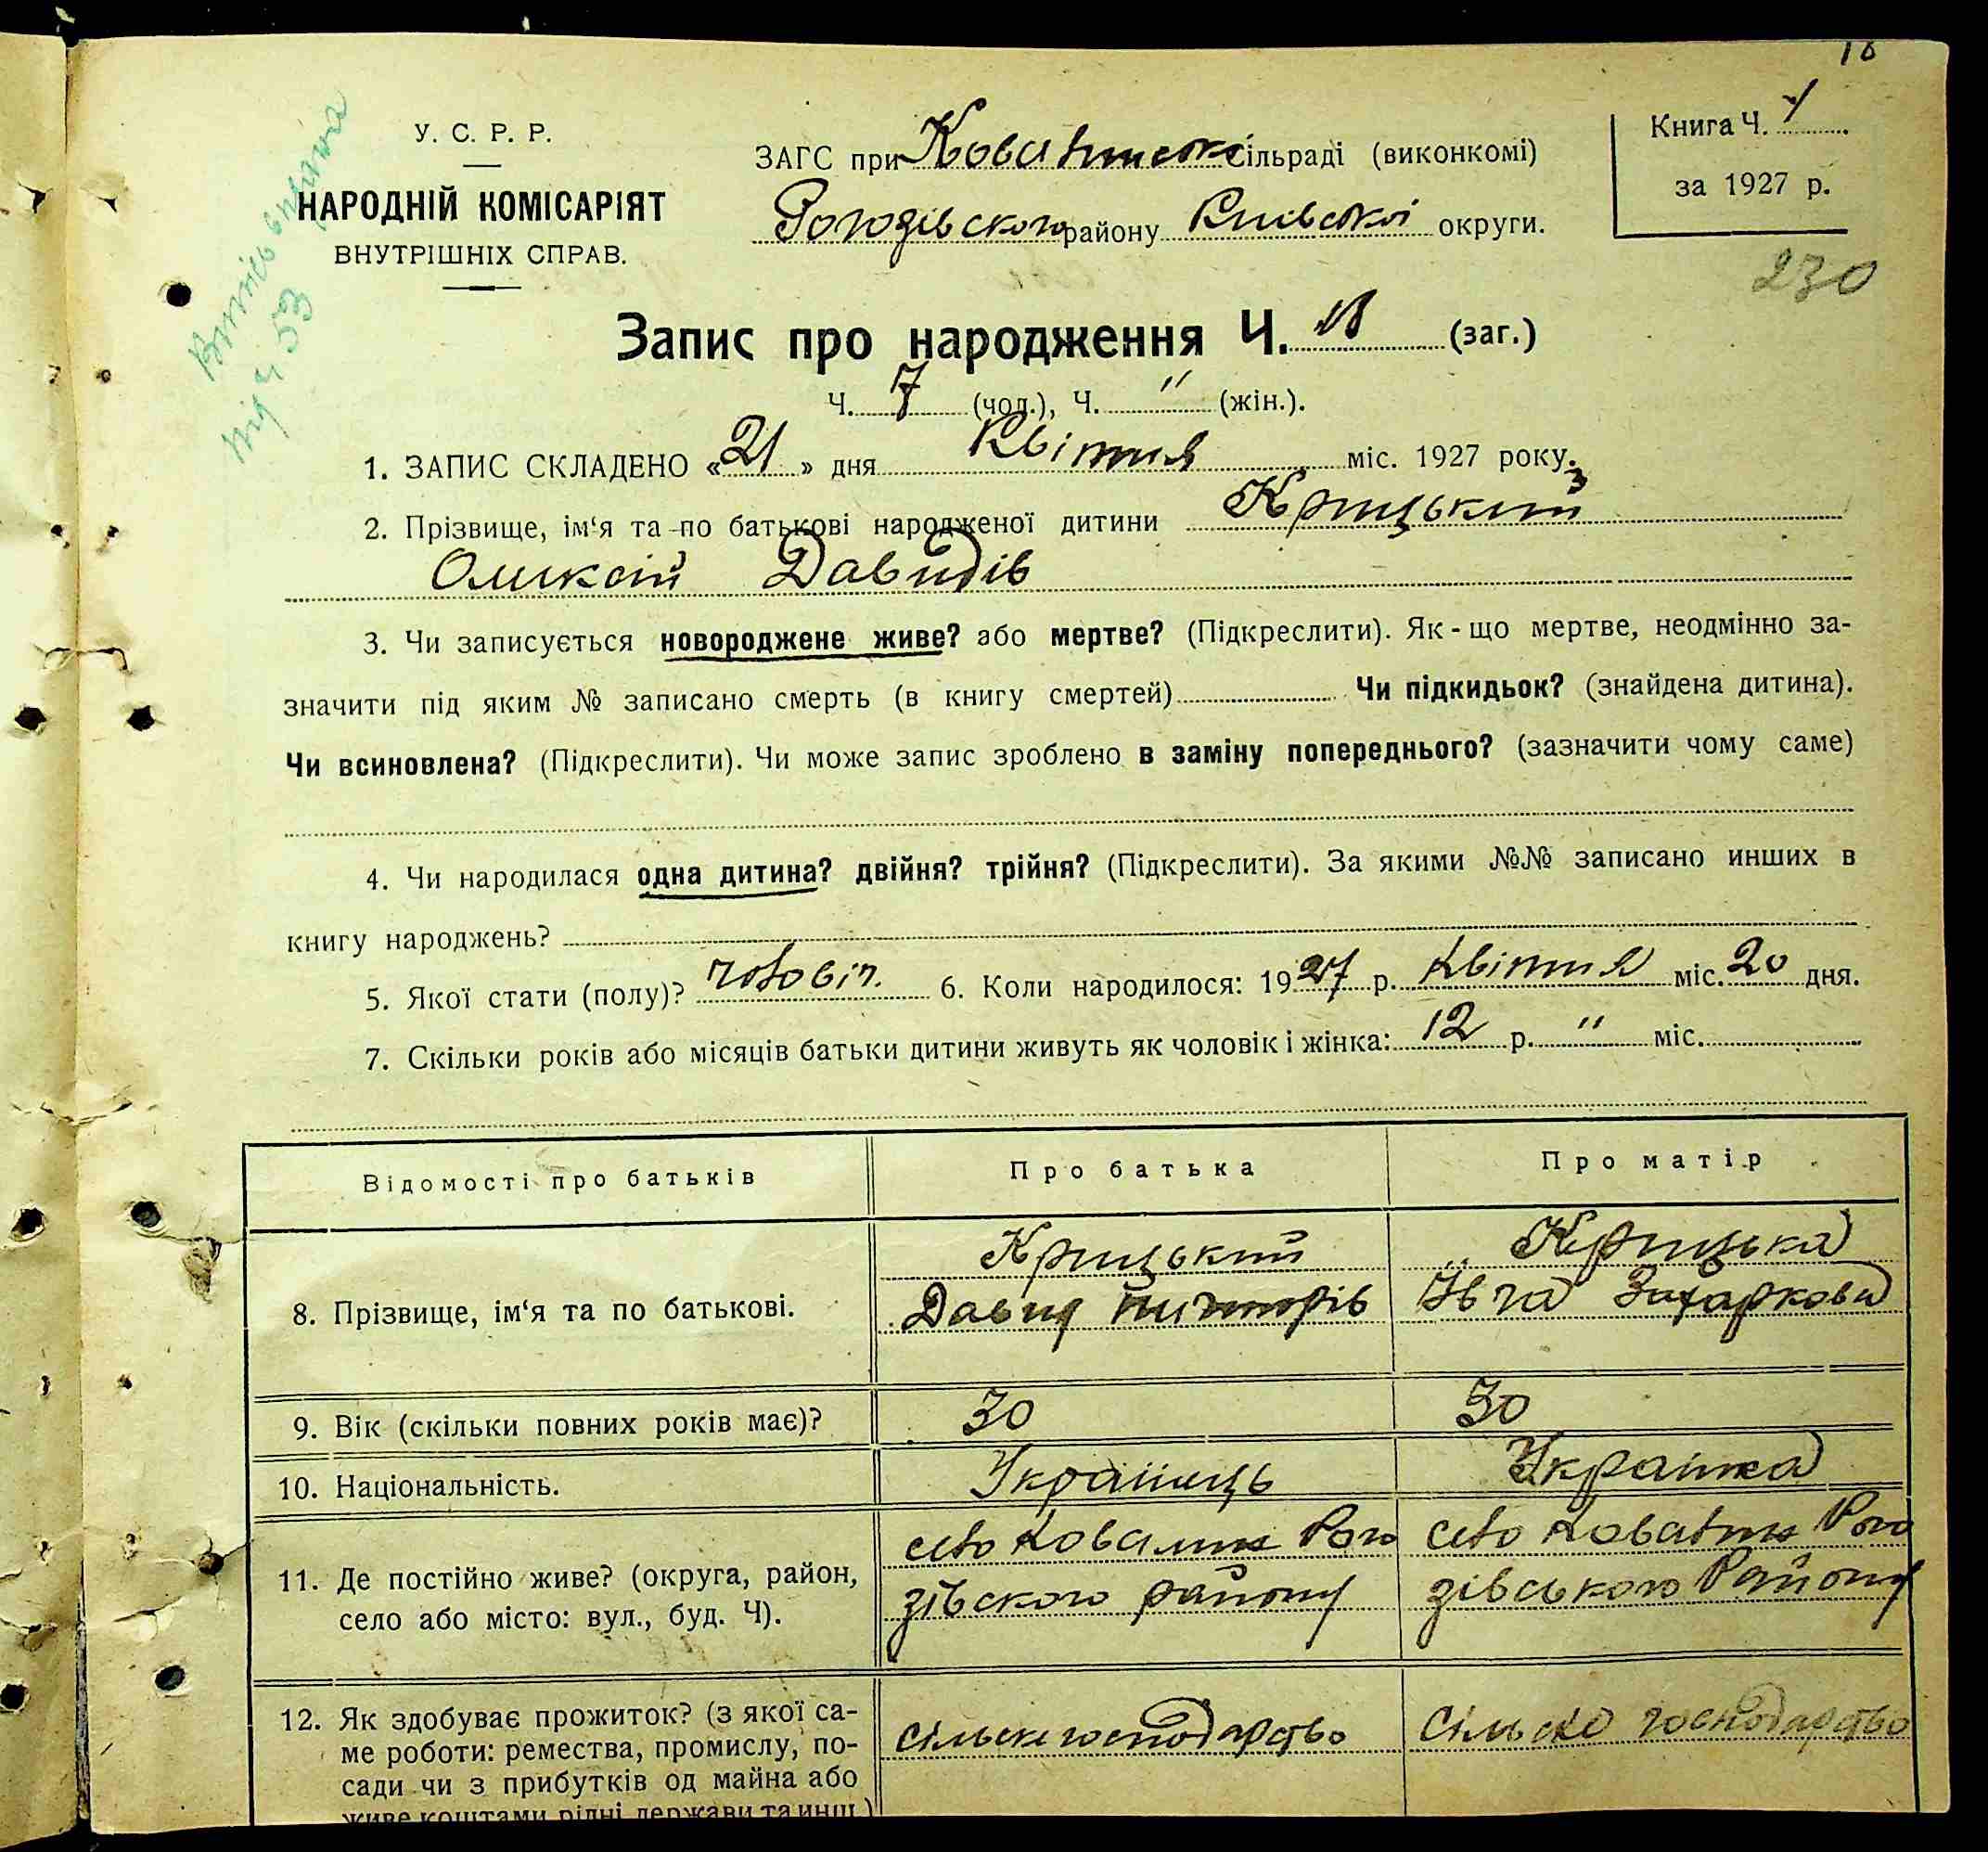 18
У. С. Р. Р.
НАРОДНІЙ КОМІСАРІЯТ
ВНУТРІШНІХ СПРАВ.
ЗАГС при Ковалинські сільраді (виконкомі)
Рогозівского району Київської округи.
Книга Ч. 1
за 1927 р.
230
під Ч 53
Запис про народження Ч. 18 (заг.)
Ч. 7 (чол.), Ч. " (жін.).
1. ЗАПИС СКЛАДЕНО «21» дня Квітня міс. 1927 року.
2. Прізвище, ім‘я та по батькові народженої дитини Крицький
Олексій Давидів
3. Чи записується новороджене живе? або мертве? (Підкреслити). Як-що мертве, неодмінно за-
значити під яким № записано смерть (в книгу смертей) Чи підкидьок? (знайдена дитина).
Чи всиновлена? (Підкреслити). Чи може запис зроблено в заміну попереднього? (зазначити чому саме)
4. Чи народилася одна дитина? двійня? трійня? (Підкреслити). За якими №№ записано инших в
книгу народжень?
5. Якої стати (полу)? чоловіч. 6. Коли народилося: 1927 р. Квітня міс. 20 дня.
7. Скільки років або місяців батьки дитини живуть як чоловік і жінка: 12 р. " міс.
Відомості про батьків
Про батька
Про матір
8. Прізвище, ім‘я та по батькові.
Крицький
Давид
Крицька
Івга Захаркова
9. Вік (скільки повних років має)?
30
30
10. Національність.
Українець
Украінка
11. Де постійно живе? (округа, район,
село або місто: вул., буд. Ч).
село Ковалин Рого
зівского району
село Ковалин Рого
зівського Району
12. Як здобуває прожиток? (з якої са-
ме роботи: ремества, промислу, по-
сади чи з прибутків од майна або
живе коштами рідні, держави та инш.)
сільске господарство
сільско господарство